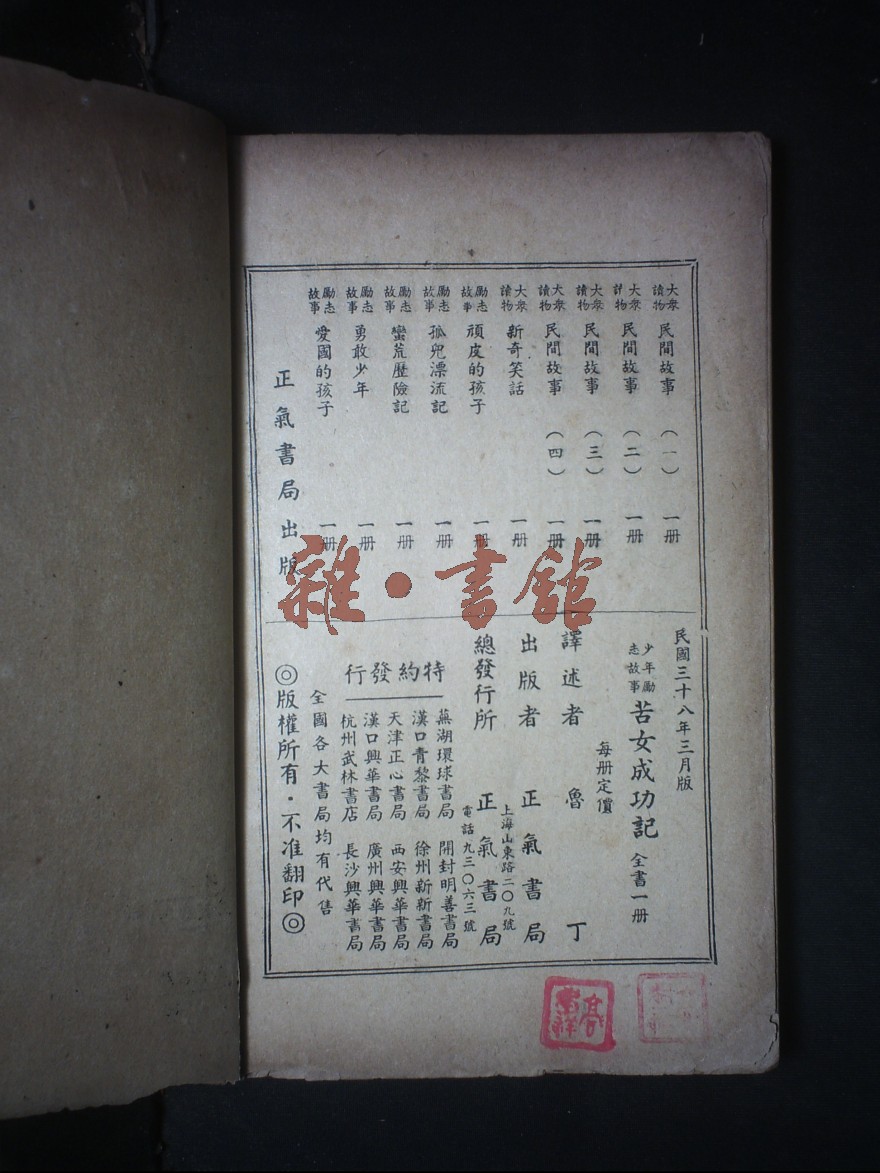 大衆讀物 民間故事 (一) 一册
大衆讀物 民間故事 (二) 一册
大衆讀物 民間故事 (三) 一册
大衆讀物 民間故事 (四) 一册
大衆讀物 新奇笑話 一册
勵志故事 頑皮的孩子 一册
勵志故事 孤兒漂流記 一册
勵志故事 蠻荒歷險記 一册
勵志故事 勇敢少年 一册
勵志故事 愛國的孩子 一册
正氣書局出版
民國三十八年三月版
少年勵志故事 苦女成功記 全書一册
每册定價
譯述者 魯丁
出版者 正氣書局
上海山東路二〇九號
總發行所 正氣書局
電話九三〇六三號
特約發行
蕪湖環球書局 開封明善書局
漢口青黎書局 徐州新新書局
天津正心書局 西安興華書局
漢口興華書局 廣州興華書局
杭州武林書店 長沙興華書局
全國各大書局均有代售
◎版權所有·不准翻印◎
雜·書館